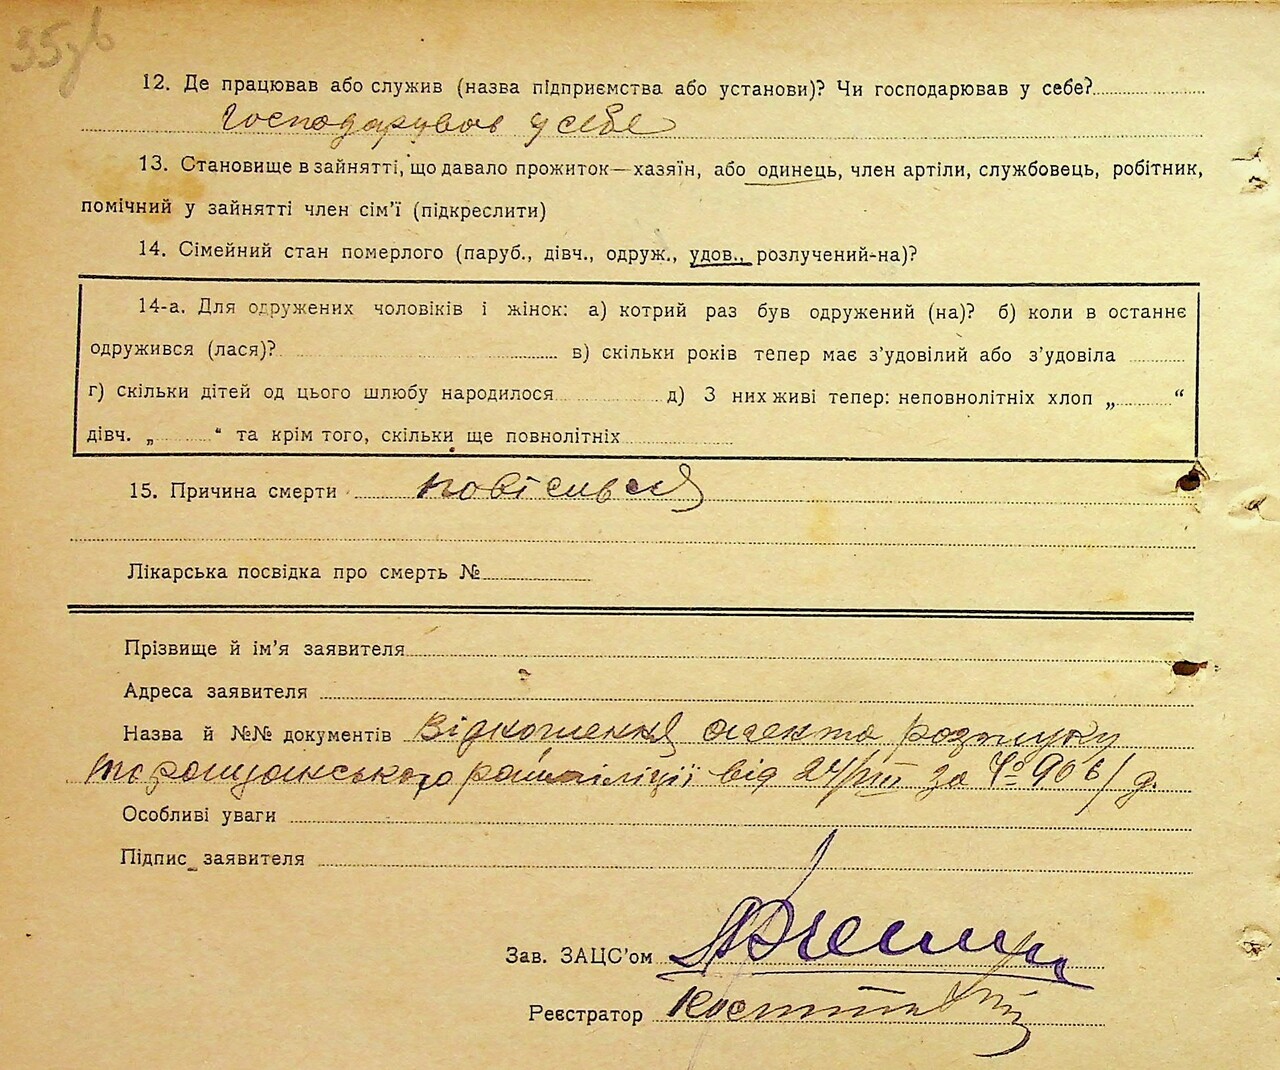 35зв
12. Де працював або служив (назва підприємства або установи)? Чи господарював у себе?
Господарував у себе
13. Становище в зайнятті, що давало прожиток—хазяїн, або одинець, член артілі, службовець, робітник,
помічний у зайнятті член сім'ї (підкреслити)
14. Сімейний стан померлого (паруб., дівч., одруж., удов., розлучений-на)?
14-а. Для одружених чоловіків і жінок: а) котрий раз був одружений (на)? б) коли в останнє
одружився (лася)? в) скільки років тепер має з'удовілий або з'удовіла
г) скільки дітей од цього шлюбу народилося д) З них живі тепер: неповнолітніх хлоп „ “
дівч. „ “ та крім того, скільки ще повнолітніх
15. Причина смерти повісився
Лікарська посвідка про смерть №
Прізвище й ім'я заявителя
Адреса заявителя
Назва й №№ документів Відношення агента розшуку
райміліції від 24/VIII за № 906/д.
Особливі уваги
Підпис заявителя
Зав. ЗАЦС'ом
Реєстратор